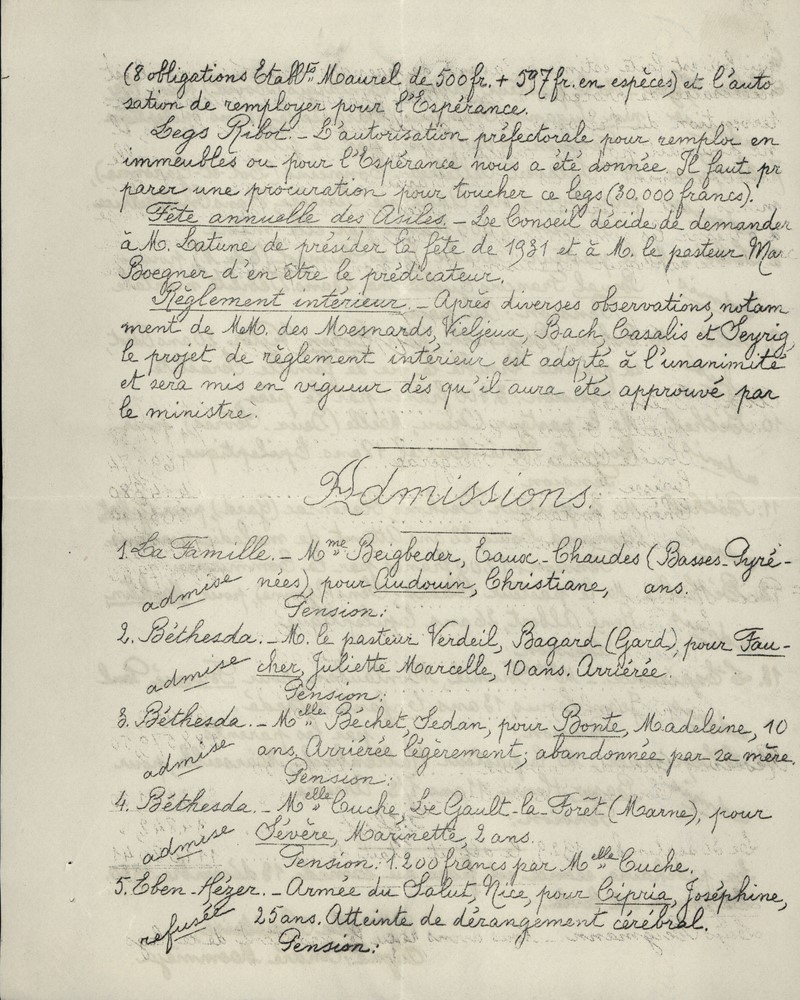 (8 obligations Etabl.ts Maurel de 500 fr. + 597 fr. en espèces) et l'auto
sation de remployer pour l'Espérance.
Legs Ribot. - L'autorisation préfectorale pour remploi en
immeubles ou pour l'Espérance nous a été donnée. Il faut pr
parer une procuration pour toucher ce legs (30.000 francs).
Fête annuelle des Asiles. - Le Conseil décide de demander
à M. Latune de présider la fête de 1931 et à M. le pasteur Ma
Boegner d'en être le prédicateur.
Règlement intérieur. - Après diverses observations, notam
ment de MM. des Mesnards, Vieljeux, Bach, Casalis et Seyrig,
le projet de règlement intérieur est adopté à l'unanimité
et sera mis en vigueur dès qu'il aura été approuvé par
le ministre.
Admissions.
1. La Famille. - Mme Beigbeder, Eaux-Chaudes (Basses-Pyré-
admise nées), pour Audouin, Christiane, ans.
Pension:
2. Béthesda. - M. le pasteur Verdeil, Bagard (Gard), pour Fau-
admise cher, Juliette Marcelle, 10 ans. Arriérée.
Pension:
3. Béthesda. - Melle Béchet, Sedan, pour Bonte, Madeleine, 10
admise ans. Arriérée légèrement; abandonnée par sa mère.
Pension:
4. Béthesda. - Melle Cuche, Le Gault-la-Forêt (Marne), pour
admise Sévère, Marinette, 2 ans.
Pension: 1.200 francs par Melle Cuche.
5. Eben-Hézer. - Armée du Salut, Nice, pour Cipria, Joséphine,
refusée 25 ans. Atteinte de dérangement cérébral.
Pension: